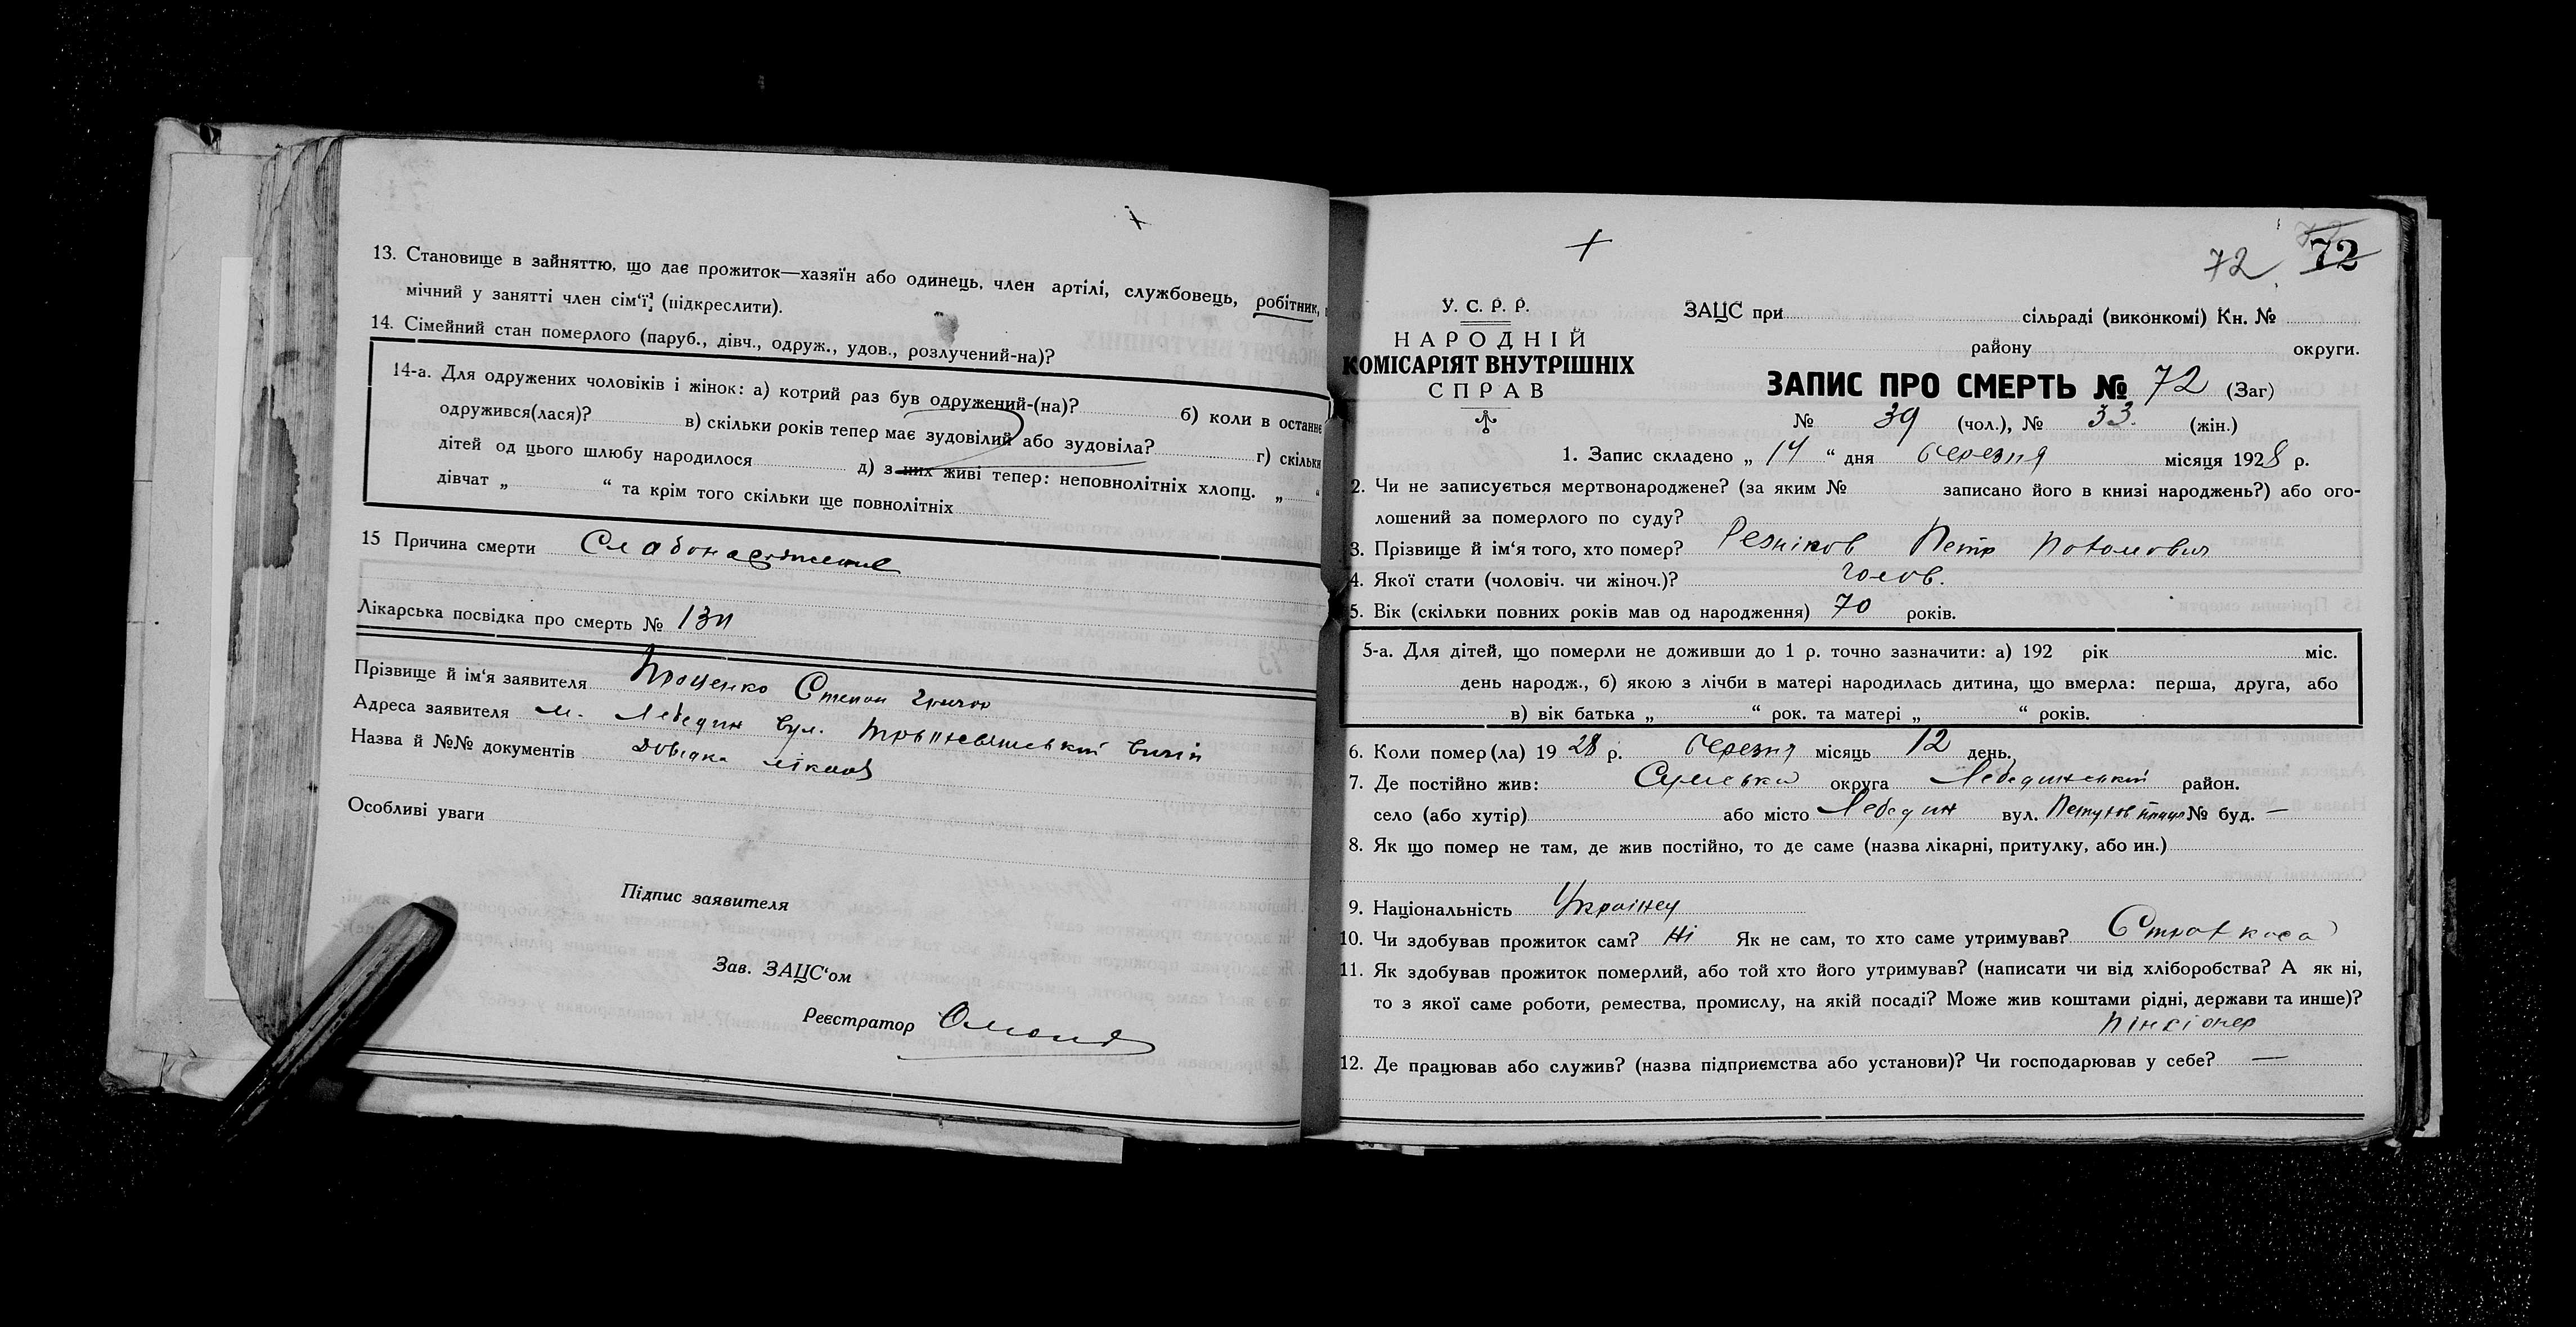 13. Становище в зайняттю, що дає прожиток—хазяїн або одинець, член артілі, службовець, робітник,
мічний у занятті член сім'ї (підкреслити).
14. Сімейний стан померлого (паруб., дівч., одруж., удов., розлучений-на)?
14-а. Для одружених чоловіків і жінок: а) котрий раз був одружений-(на)? б) коли в останнє
одружився(лася)? в) скільки років тепер має зудовілий або зудовіла? г) скільки
дітей од цього шлюбу народилося д) з них живі тепер: неповнолітніх хлопц. „ “
дівчат „ “ та крім того скільки ще повнолітніх
15 Причина смерти
Лікарська посвідка про смерть №
Прізвище й ім'я заявителя Проценко Степан
Адреса заявителя м. Лебедин вул.
Назва й №№ документів Довідка
Особливі уваги
Підпис заявителя
Зав. ЗАЦС'ом
Реєстратор
72 72
У. С. Р. Р.
НАРОДНІЙ
КОМІСАРІЯТ ВНУТРІШНІХ
СПРАВ
ЗАЦС при сільраді (виконкомі) Кн. №
району округи.
ЗАПИС ПРО СМЕРТЬ № 72 (Заг)
№ 39 (чол.), № 33. (жін.)
1. Запис складено „ 14 “ дня березня місяця 1928 р.
2. Чи не записується мертвонароджене? (за яким № записано його в книзі народжень?) або ого-
лошений за померлого по суду?
3. Прізвище й ім'я того, хто помер? Резніков Петр
4. Якої стати (чоловіч. чи жіноч.)? чолов.
5. Вік (скільки повних років мав од народження) 70 років.
5-а. Для дітей, що померли не доживши до 1 р. точно зазначити: а) 192 рік міс.
день народж., б) якою з лічби в матері народилась дитина, що вмерла: перша, друга, або
в) вік батька „ “ рок. та матері „ “ років.
6. Коли помер(ла) 19 28 р. березня місяць 12 день.
7. Де постійно жив: Сумська округа Лебединський район.
село (або хутір) або місто Лебедин вул. № буд. —
8. Як що помер не там, де жив постійно, то де саме (назва лікарні, притулку, або ин.)
9. Національність Українец
10. Чи здобував прожиток сам? Ні Як не сам, то хто саме утримував? Страхкаса
11. Як здобував прожиток померлий, або той хто його утримував? (написати чи від хліборобства? А як ні,
то з якої саме роботи, ремества, промислу, на якій посаді? Може жив коштами рідні, держави та инше)?
Пінсіонер
12. Де працював або служив? (назва підприємства або установи)? Чи господарював у себе? —